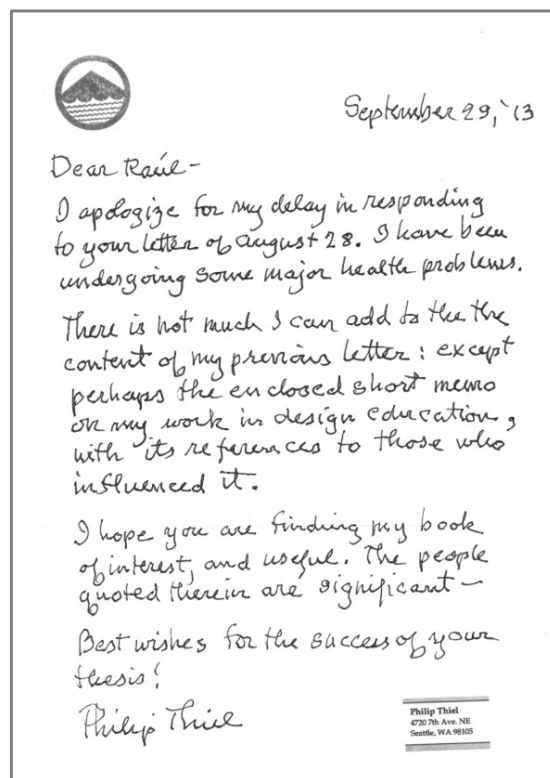 September 29, '13
Dear Raúl-
I apologize for my delay in responding
to your letter of august 28. I have been
undergoing some major health problems.
There is not much I can add to the the
content of my previous letter: except
perhaps the enclosed short memo
on my work in design education,
with its references to those who
influenced it.
I hope you are finding my book
of interest, and useful. The people
quoted therein are significant—
Best wishes for the success of your
thesis!
Philip Thiel
Philip Thiel
4720 7th Ave. NE
Seattle, WA 98105